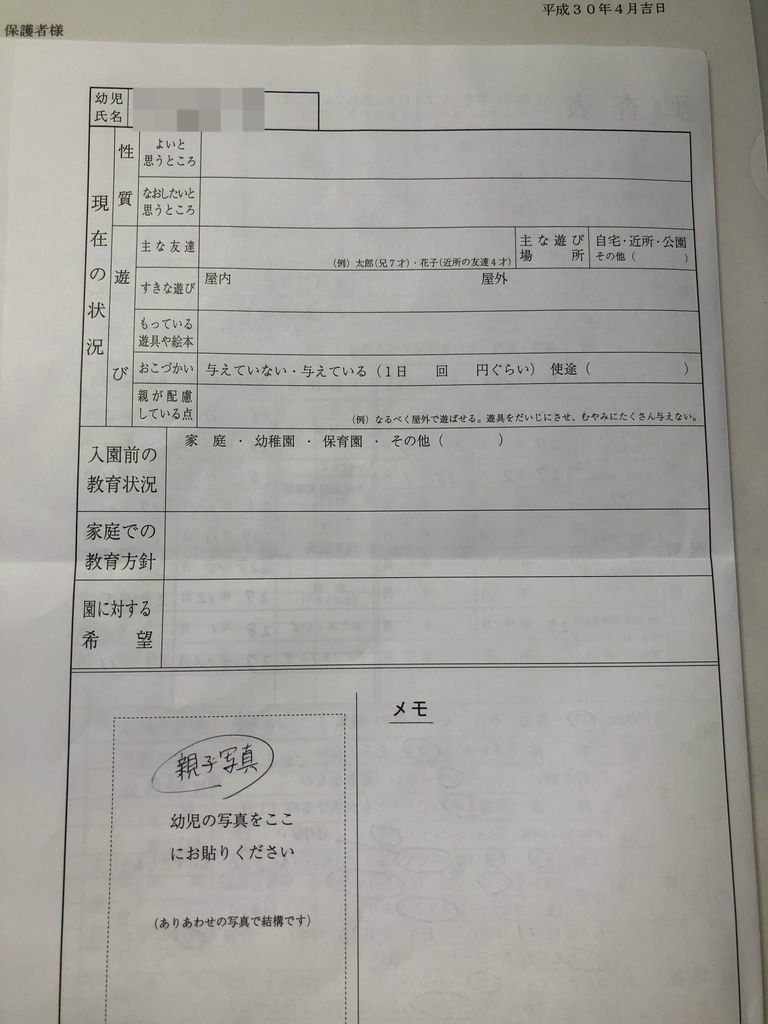 平成３０年４月吉日
保護者様
幼児
氏名
現在の状況
性質
よいと
思うところ
なおしたいと
思うところ
遊び
主な友達
(例) 太郎(兄７才)・花子(近所の友達４才)
主な遊び
場所
自宅・近所・公園
その他（　　　　）
すきな遊び
屋内
屋外
もっている
遊具や絵本
おこづかい
与えていない・与えている（１日　　回　　円ぐらい）　使途（　　　　　　　）
親が配慮
している点
(例) なるべく屋外で遊ばせる。遊具をだいじにさせ、むやみにたくさん与えない。
入園前の
教育状況
家　庭　・　幼稚園　・　保育園　・　その他（　　　　）
家庭での
教育方針
園に対する
希　望
メモ
親子写真
幼児の写真をここ
にお貼りください
(ありあわせの写真で結構です)